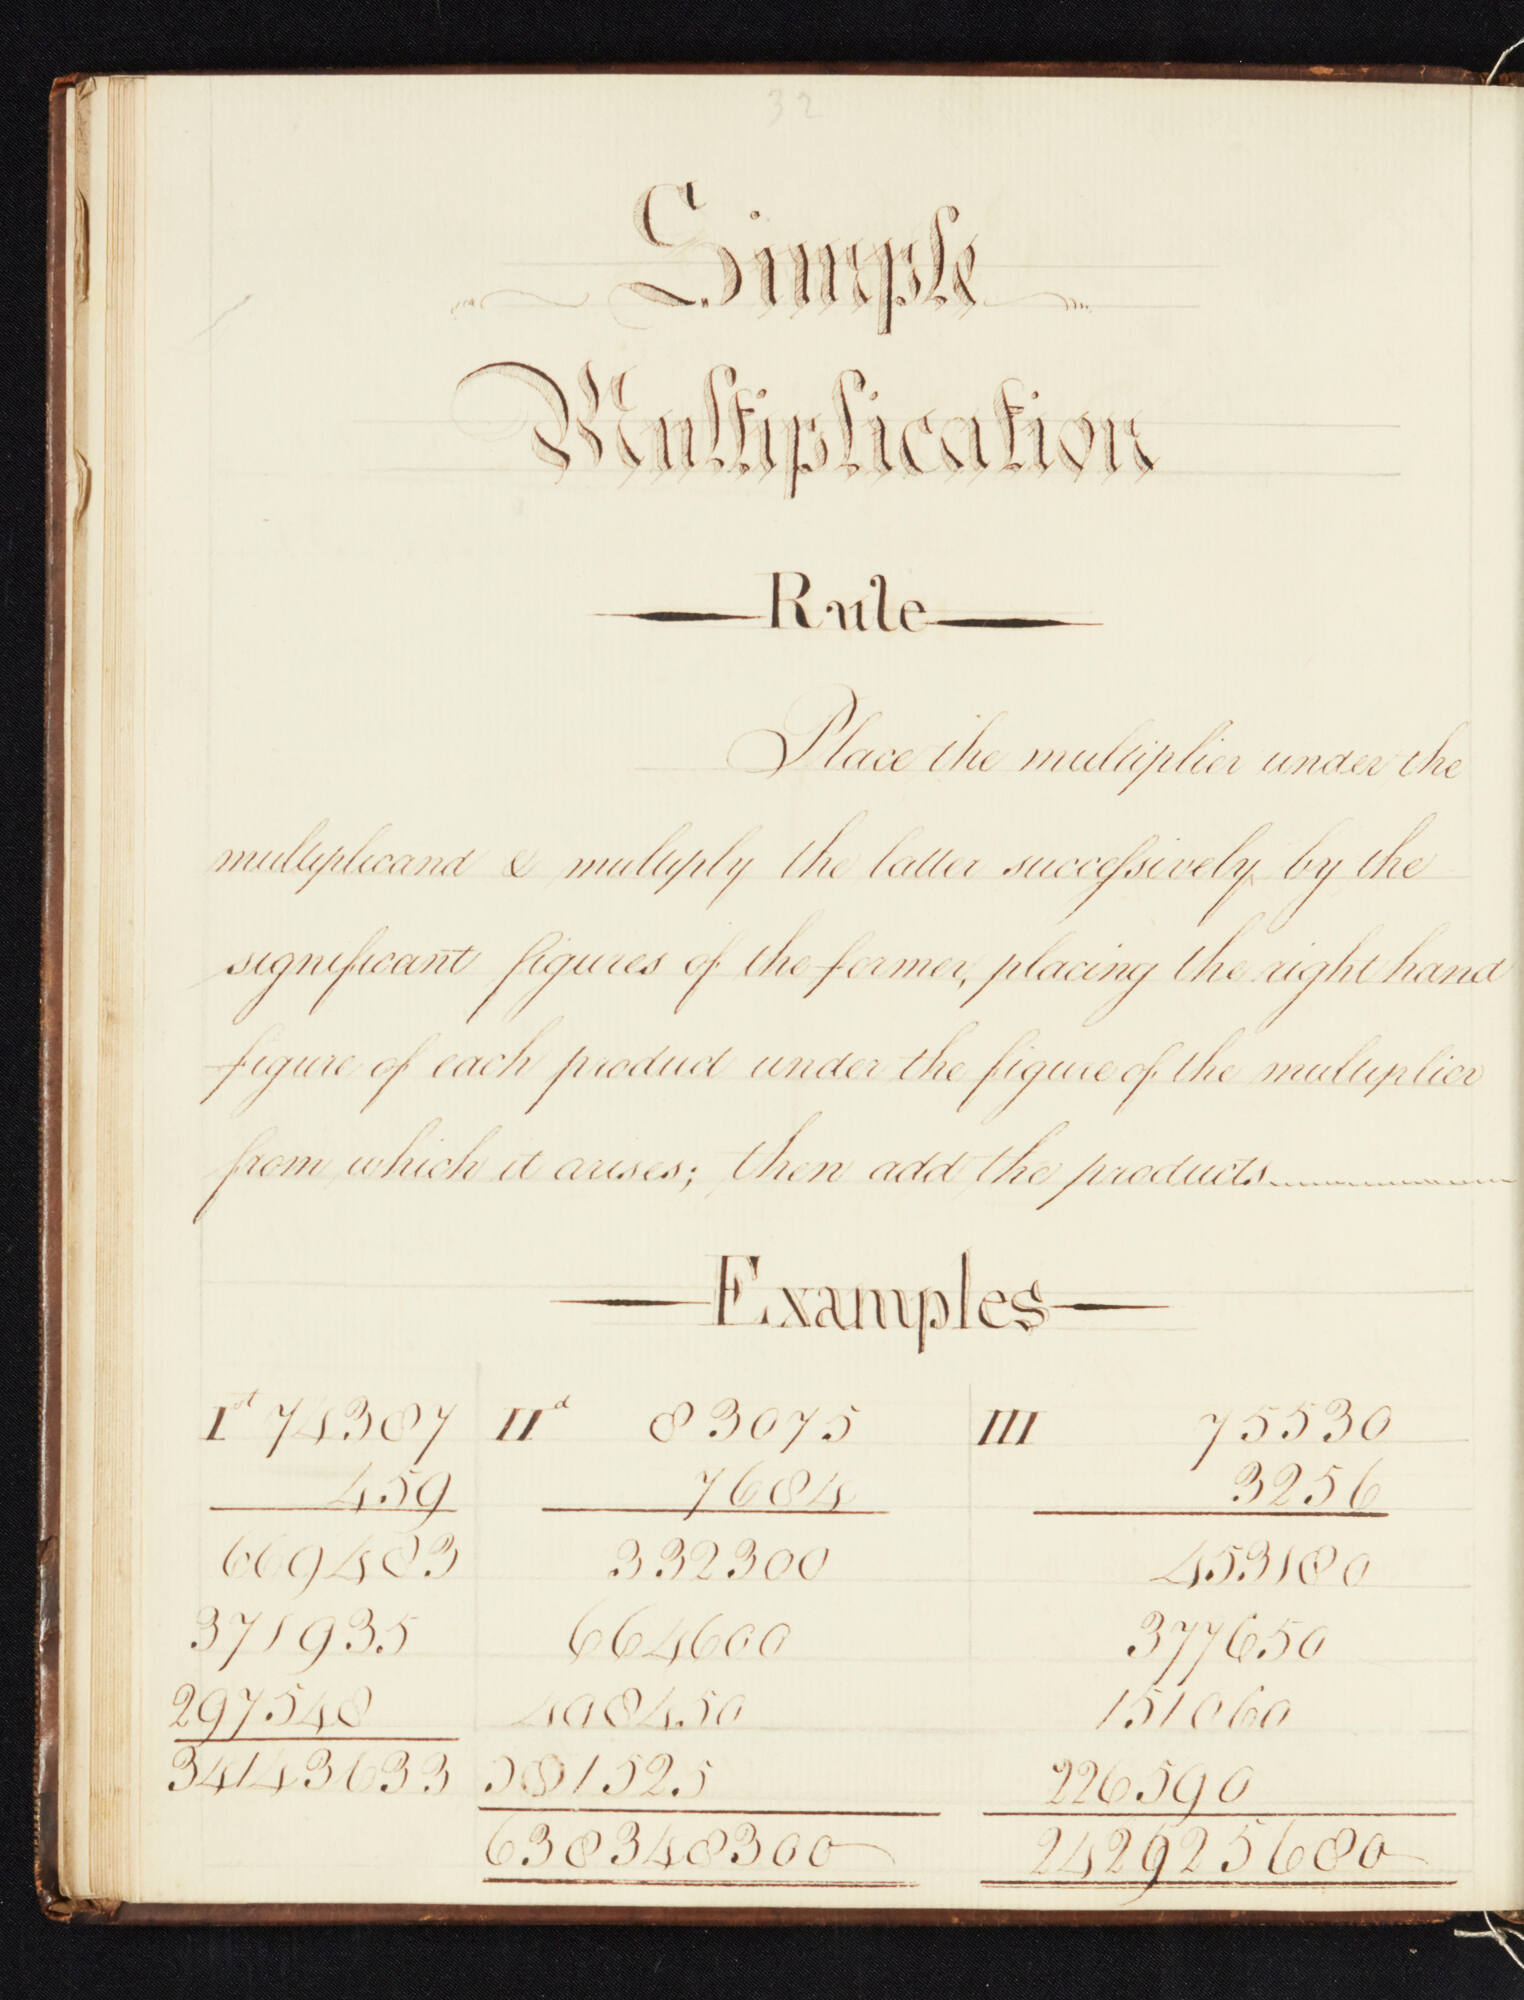 32
Simple
Multiplication
Rule
Place the multiplier under the
multiplicand & multiply the latter succeſsively by the
significant figures of the former, placing the right hand
figure of each product under the figure of the multiplier
from which it arises; then add the products
Examples
Ist 74387
459
669483
371935
297548
34143633
IId 83075
7684
332300
664600
498450
581525
638348300
III 75530
3256
453180
377650
151060
226590
242925680